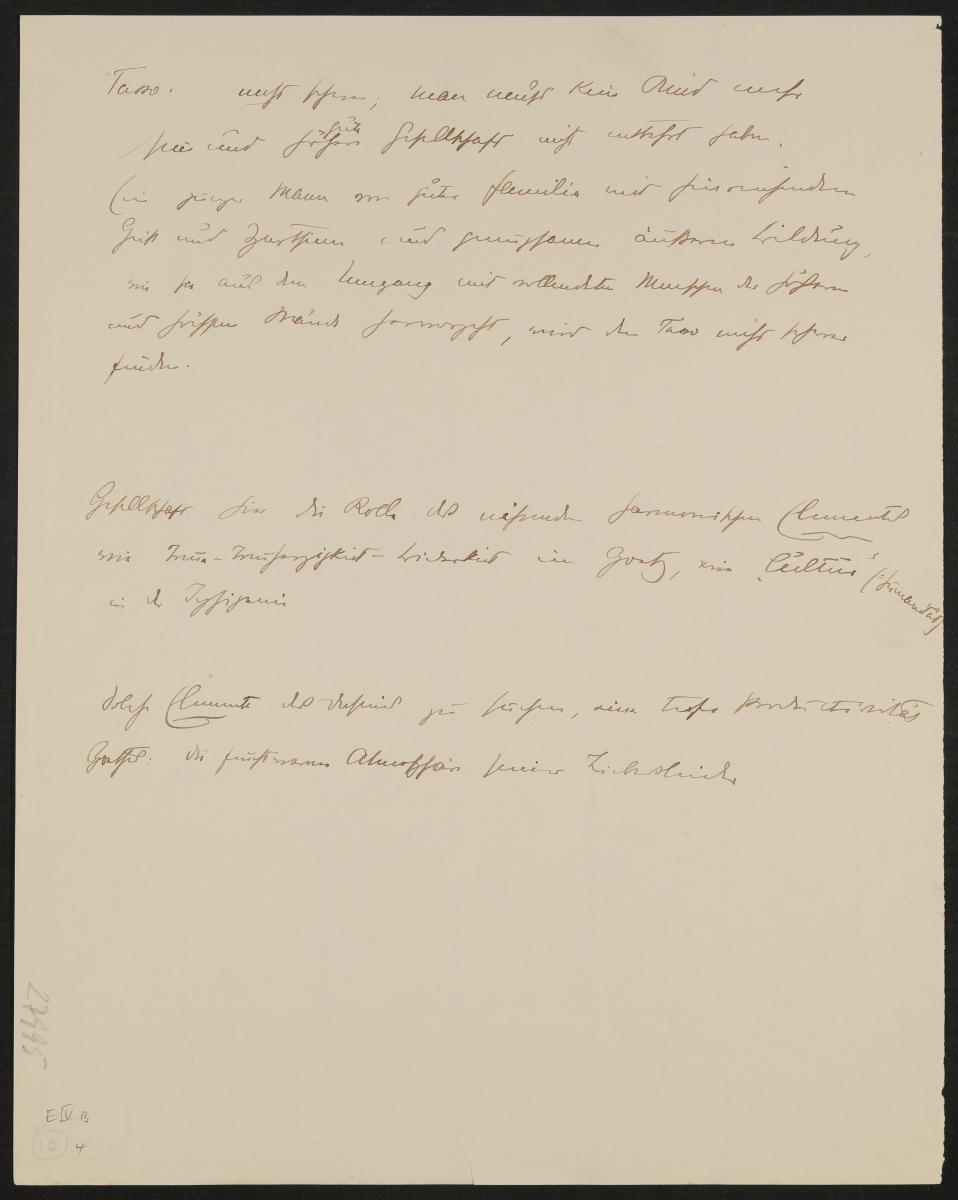 Tasso: nicht schwer; man muss kein Kind mehr
sein und gute höhere Gesellschaft nicht entbehrt haben.
Ein junger Mann von guter Familie mit hinreichendem
Geist und Zartsinn und genugsamer äusserer Bildung,
wie sie aus dem Umgang mit vollendeten Menschen der höhern
und höchsten Stände hervorgeht, wird den Tasso nicht schwer
finden.
Gesellschaft hier die Rolle des nährenden harmonischen Elementes
wie Treu-Treuherzigkeit-Biederkeit im Goetz, wie „Cultur" (Humanität)
in der Iphigenie
Solche Elemente des Daseins zu suchen, eine tiefe Productivität
Goethes: die Atmosphäre seiner Liebeslieder
27995
E IV B
4